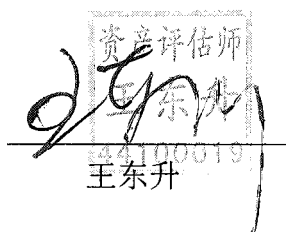 资产评估师
王东升
44100019
王东升